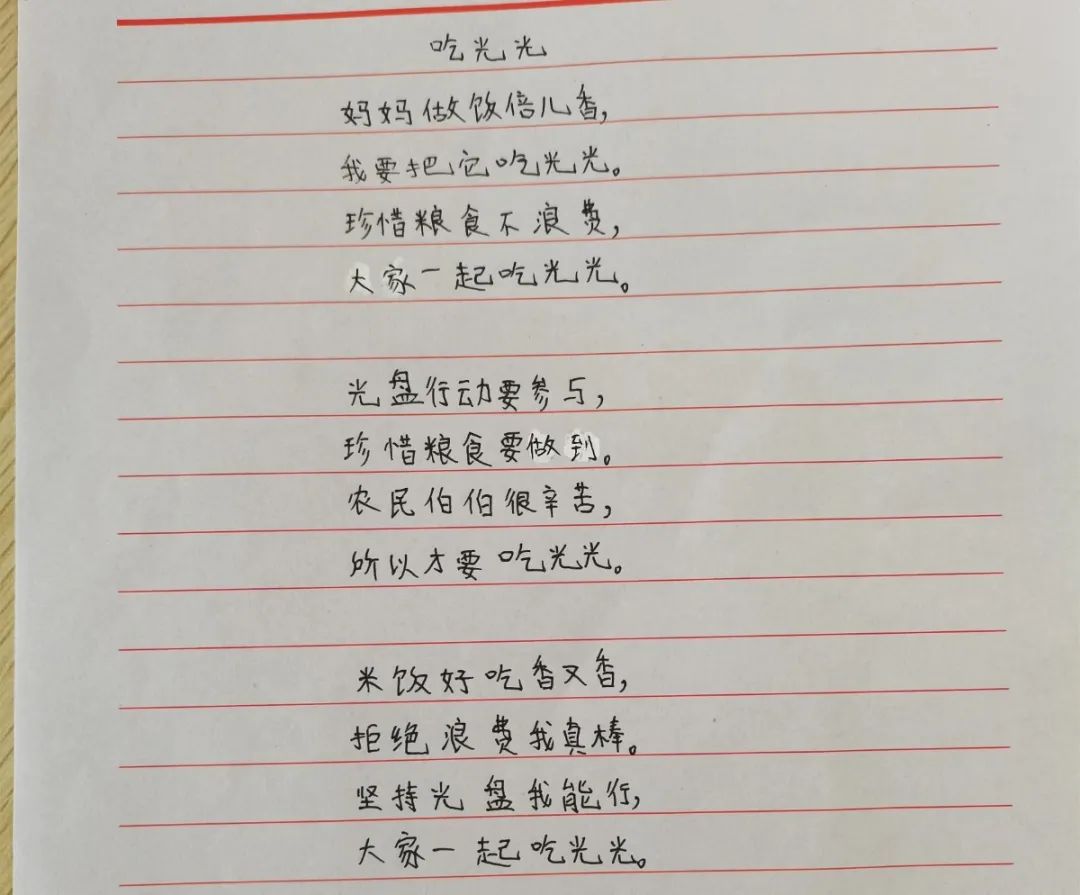 吃光光
妈妈做饭倍儿香,
我要把它吃光光。
珍惜粮食不浪费,
大家一起吃光光。
光盘行动要参与,
珍惜粮食要做到。
农民伯伯很辛苦,
所以才要吃光光。
米饭好吃香又香,
拒绝浪费我真棒。
坚持光盘我能行,
大家一起吃光光。